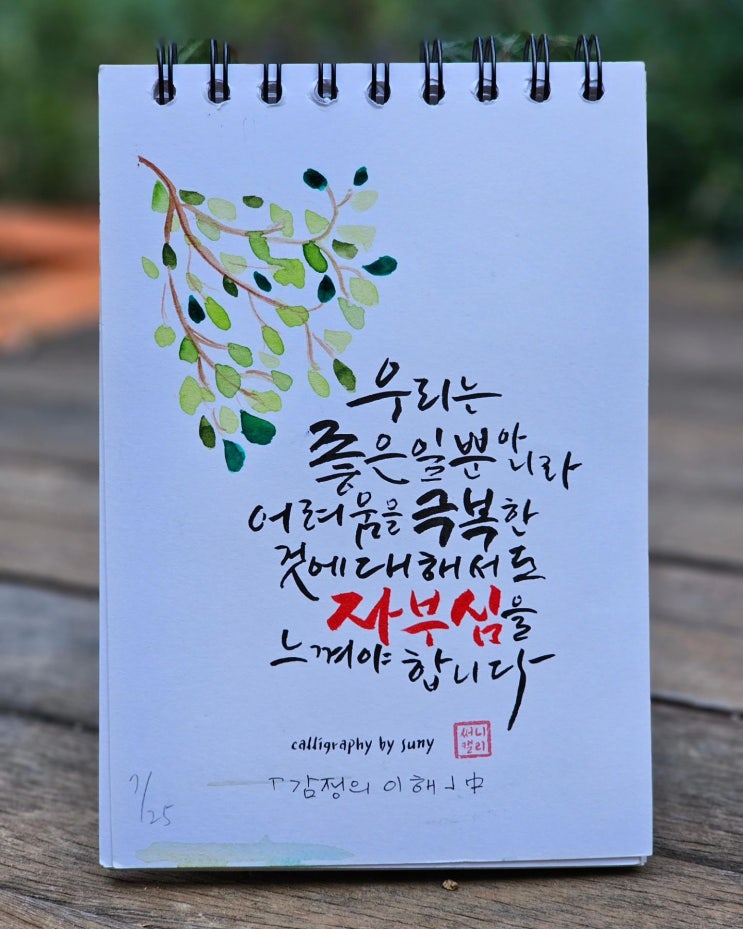 우리는
좋은일뿐아니라
어려움을 극복한
것에대해서도
자부심을
느껴야합니다
calligraphy by suny
써니
캘리
「감정의 이해」中
7/25